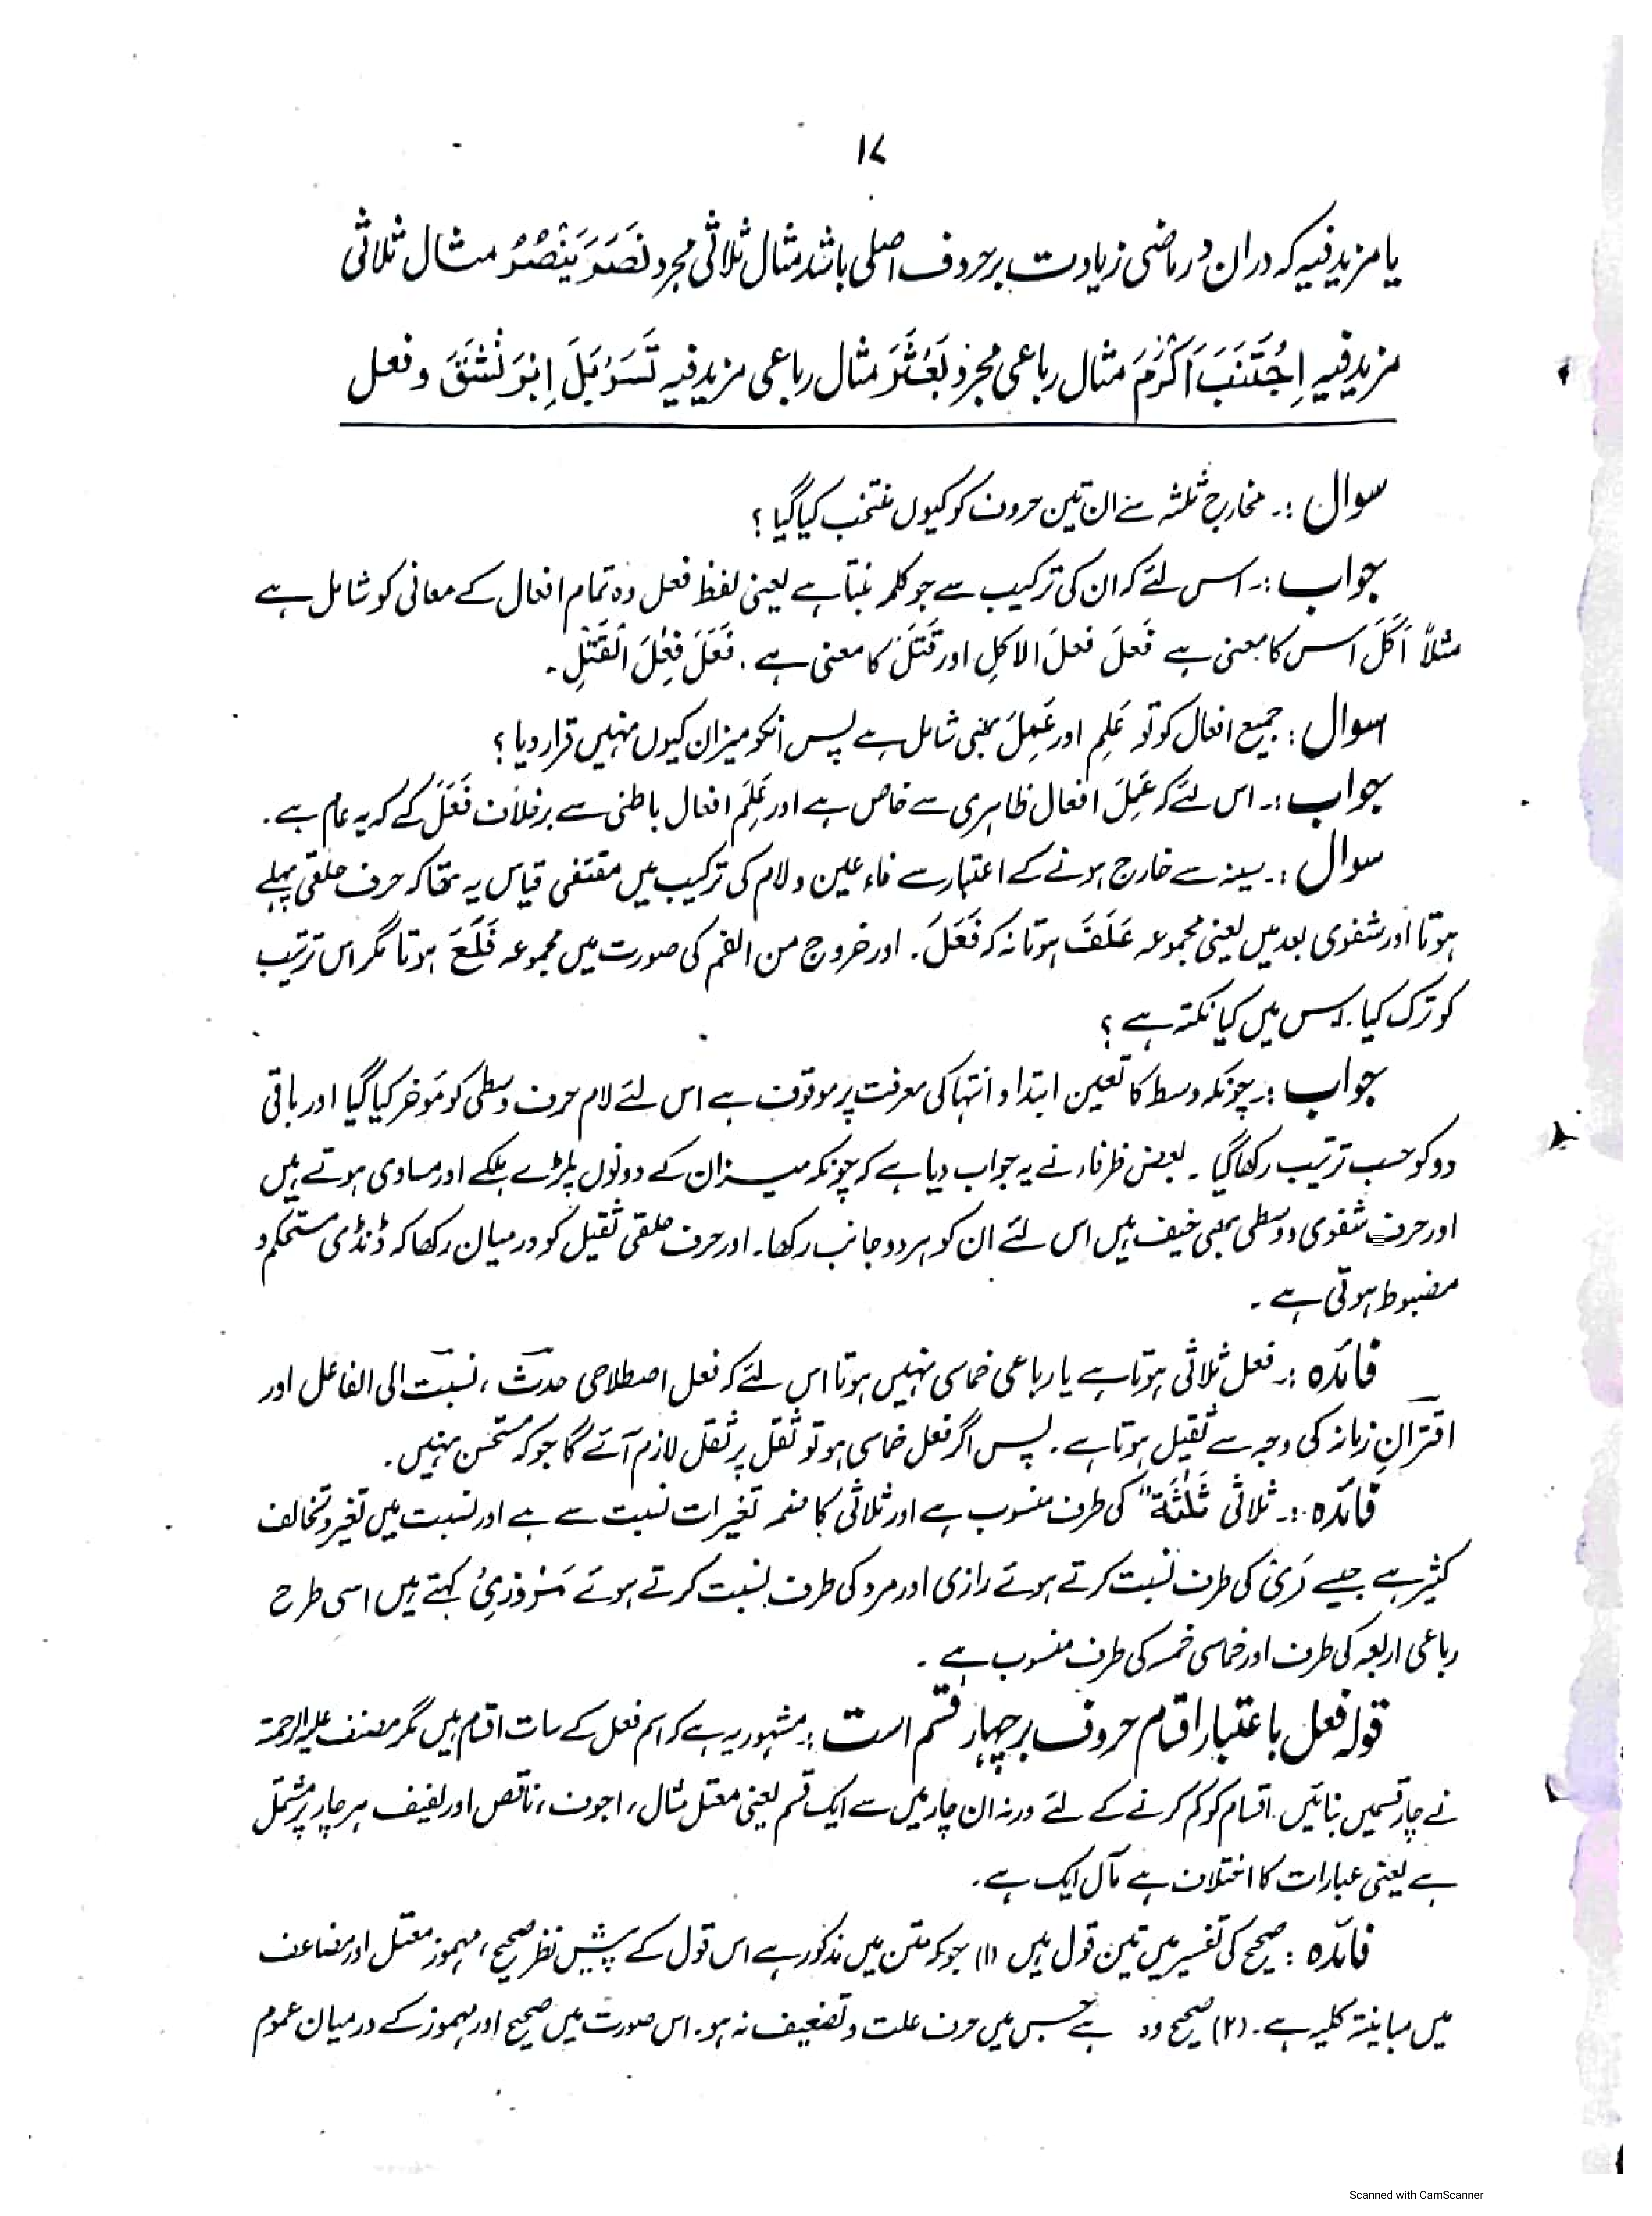 ۱۷
یا مزید فیہ کہ دران در ماضی زیادت بر حروف اصلی باشد مثال ثلاثی مجرد نَصَرَ یَنْصُرُ مثال ثلاثی
مزید فیہ اِجْتَنَبَ اَکْرَمَ مثال رباعی مجرد بَعْثَرَ مثال رباعی مزید فیہ تَسَرْبَلَ اِبْرَنْشَقَ و فعل
سوال :۔ مخارج ثلثہ سے ان تین حروف کو کیوں منتخب کیا گیا ؟
جواب :۔ اس لئے کہ ان کی ترکیب سے جو کلمہ بنتا ہے یعنی لفظ فعل وہ تمام افعال کے معانی کو شامل ہے
مثلاً اَکَلَ اس کا معنی ہے فَعَلَ فعلَ الاکلِ اور قَتَلَ کا معنی ہے ، فَعَلَ فِعْلَ الْقَتْلِ ۔
سوال : جمیع افعال کو تو عَلِمَ اور عَمِلَ بھی شامل ہے پس انکو میزان کیوں نہیں قرار دیا ؟
جواب :۔ اس لئے کہ عَمِلَ افعال ظاہری سے خاص ہے اور عَلِمَ افعال باطنی سے برخلاف فَعَلَ کے کہ یہ عام ہے ۔
سوال :۔ سینہ سے خارج ہونے کے اعتبار سے فاء عین و لام کی ترکیب میں مقتضی قیاس یہ تھا کہ حرف حلقی پہلے
ہوتا اور شفوی بعد میں یعنی مجموعہ عَلَفَ ہوتا نہ کہ فَعَلَ ۔ اور خروج من الفم کی صورت میں مجموعہ فَلَعَ ہوتا مگر اس ترتیب
کو ترک کیا ۔ اس میں کیا نکتہ ہے ؟
جواب :۔ چونکہ وسط کا تعین ابتدا و انتہا کی معرفت پر موقوف ہے اس لئے لام حرف وسطی کو مؤخر کیا گیا اور باقی
دو کو حسب ترتیب رکھا گیا ۔ بعض ظرفاء نے یہ جواب دیا ہے کہ چونکہ میزان کے دونوں پلڑے ہلکے اور مساوی ہوتے ہیں
اور حرف شفوی و وسطی بھی خفیف ہیں اس لئے ان کو ہر دو جانب رکھا ۔ اور حرف حلقی ثقیل کو درمیان رکھا کہ ڈنڈی مستحکم و
مضبوط ہوتی ہے ۔
فائدہ :۔ فعل ثلاثی ہوتا ہے یا رباعی خماسی نہیں ہوتا اس لئے کہ فعل اصطلاحی حدث ، نسبت الی الفاعل اور
اقترانِ زمانہ کی وجہ سے ثقیل ہوتا ہے ۔ پس اگر فعل خماسی ہو تو ثقل پر ثقل لازم آئے گا جو کہ مستحسن نہیں ۔
فائدہ :۔ ثلاثی ثَلٰثَة" کی طرف منسوب ہے اور ثلاثی کا ضمہ تغیرات نسبت سے ہے اور نسبت میں تغیر و تخالف
کثیر ہے جیسے رَیْ کی طرف نسبت کرتے ہوئے رازی اور مرو کی طرف نسبت کرتے ہوئے مَرْوَزِیُّ کہتے ہیں اسی طرح
رباعی اربعہ کی طرف اور خماسی خمسہ کی طرف منسوب ہے ۔
قولہ فعل باعتبار اقسام حروف بر چہار قسم است :۔ مشہور یہ ہے کہ اسم فعل کے سات اقسام ہیں مگر مصنف علیہ الرحمة
نے چار قسمیں بنائیں ۔ اقسام کو کم کرنے کے لئے ورنہ ان چار میں سے ایک قسم یعنی معتل مثال ، اجوف ، ناقص اور لفیف ہر چار پر مشتمل
ہے یعنی عبارات کا اختلاف ہے مآل ایک ہے ۔
فائدہ : صحیح کی تفسیر میں تین قول ہیں (۱) جو کہ متن میں مذکور ہے اس قول کے پیش نظر صحیح ، مہموز معتل اور مضاعف
میں مباینة کلیہ ہے ۔ (۲) صحیح وہ ہے جس میں حرف علت و تضعیف نہ ہو ۔ اس صورت میں صحیح اور مہموز کے درمیان عموم
Scanned with CamScanner